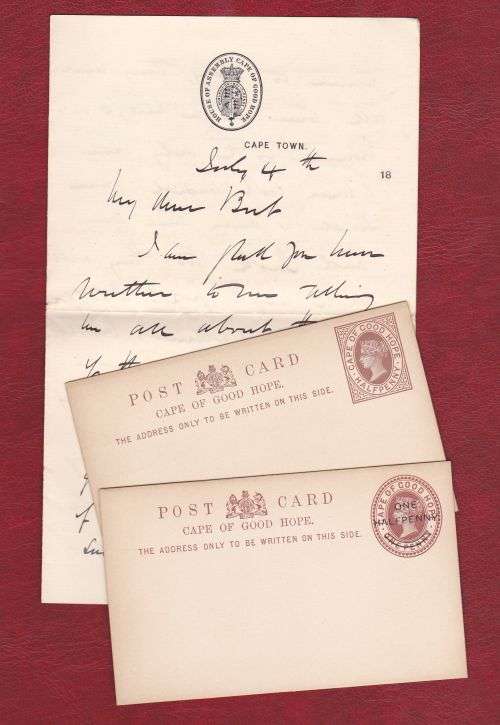 HOUSE OF ASSEMBLY CAPE OF GOOD HOPE
CAPE TOWN.
July 4th
18
My dear Bert
I am glad you have
written to me telling
me all about the
POST CARD
CAPE OF GOOD HOPE.
THE ADDRESS ONLY TO BE WRITTEN ON THIS SIDE.
CAPE OF GOOD HOPE
HALFPENNY
POST CARD
CAPE OF GOOD HOPE.
THE ADDRESS ONLY TO BE WRITTEN ON THIS SIDE.
CAPE OF GOOD HOPE
ONE
HALFPENNY.
ONE PENNY